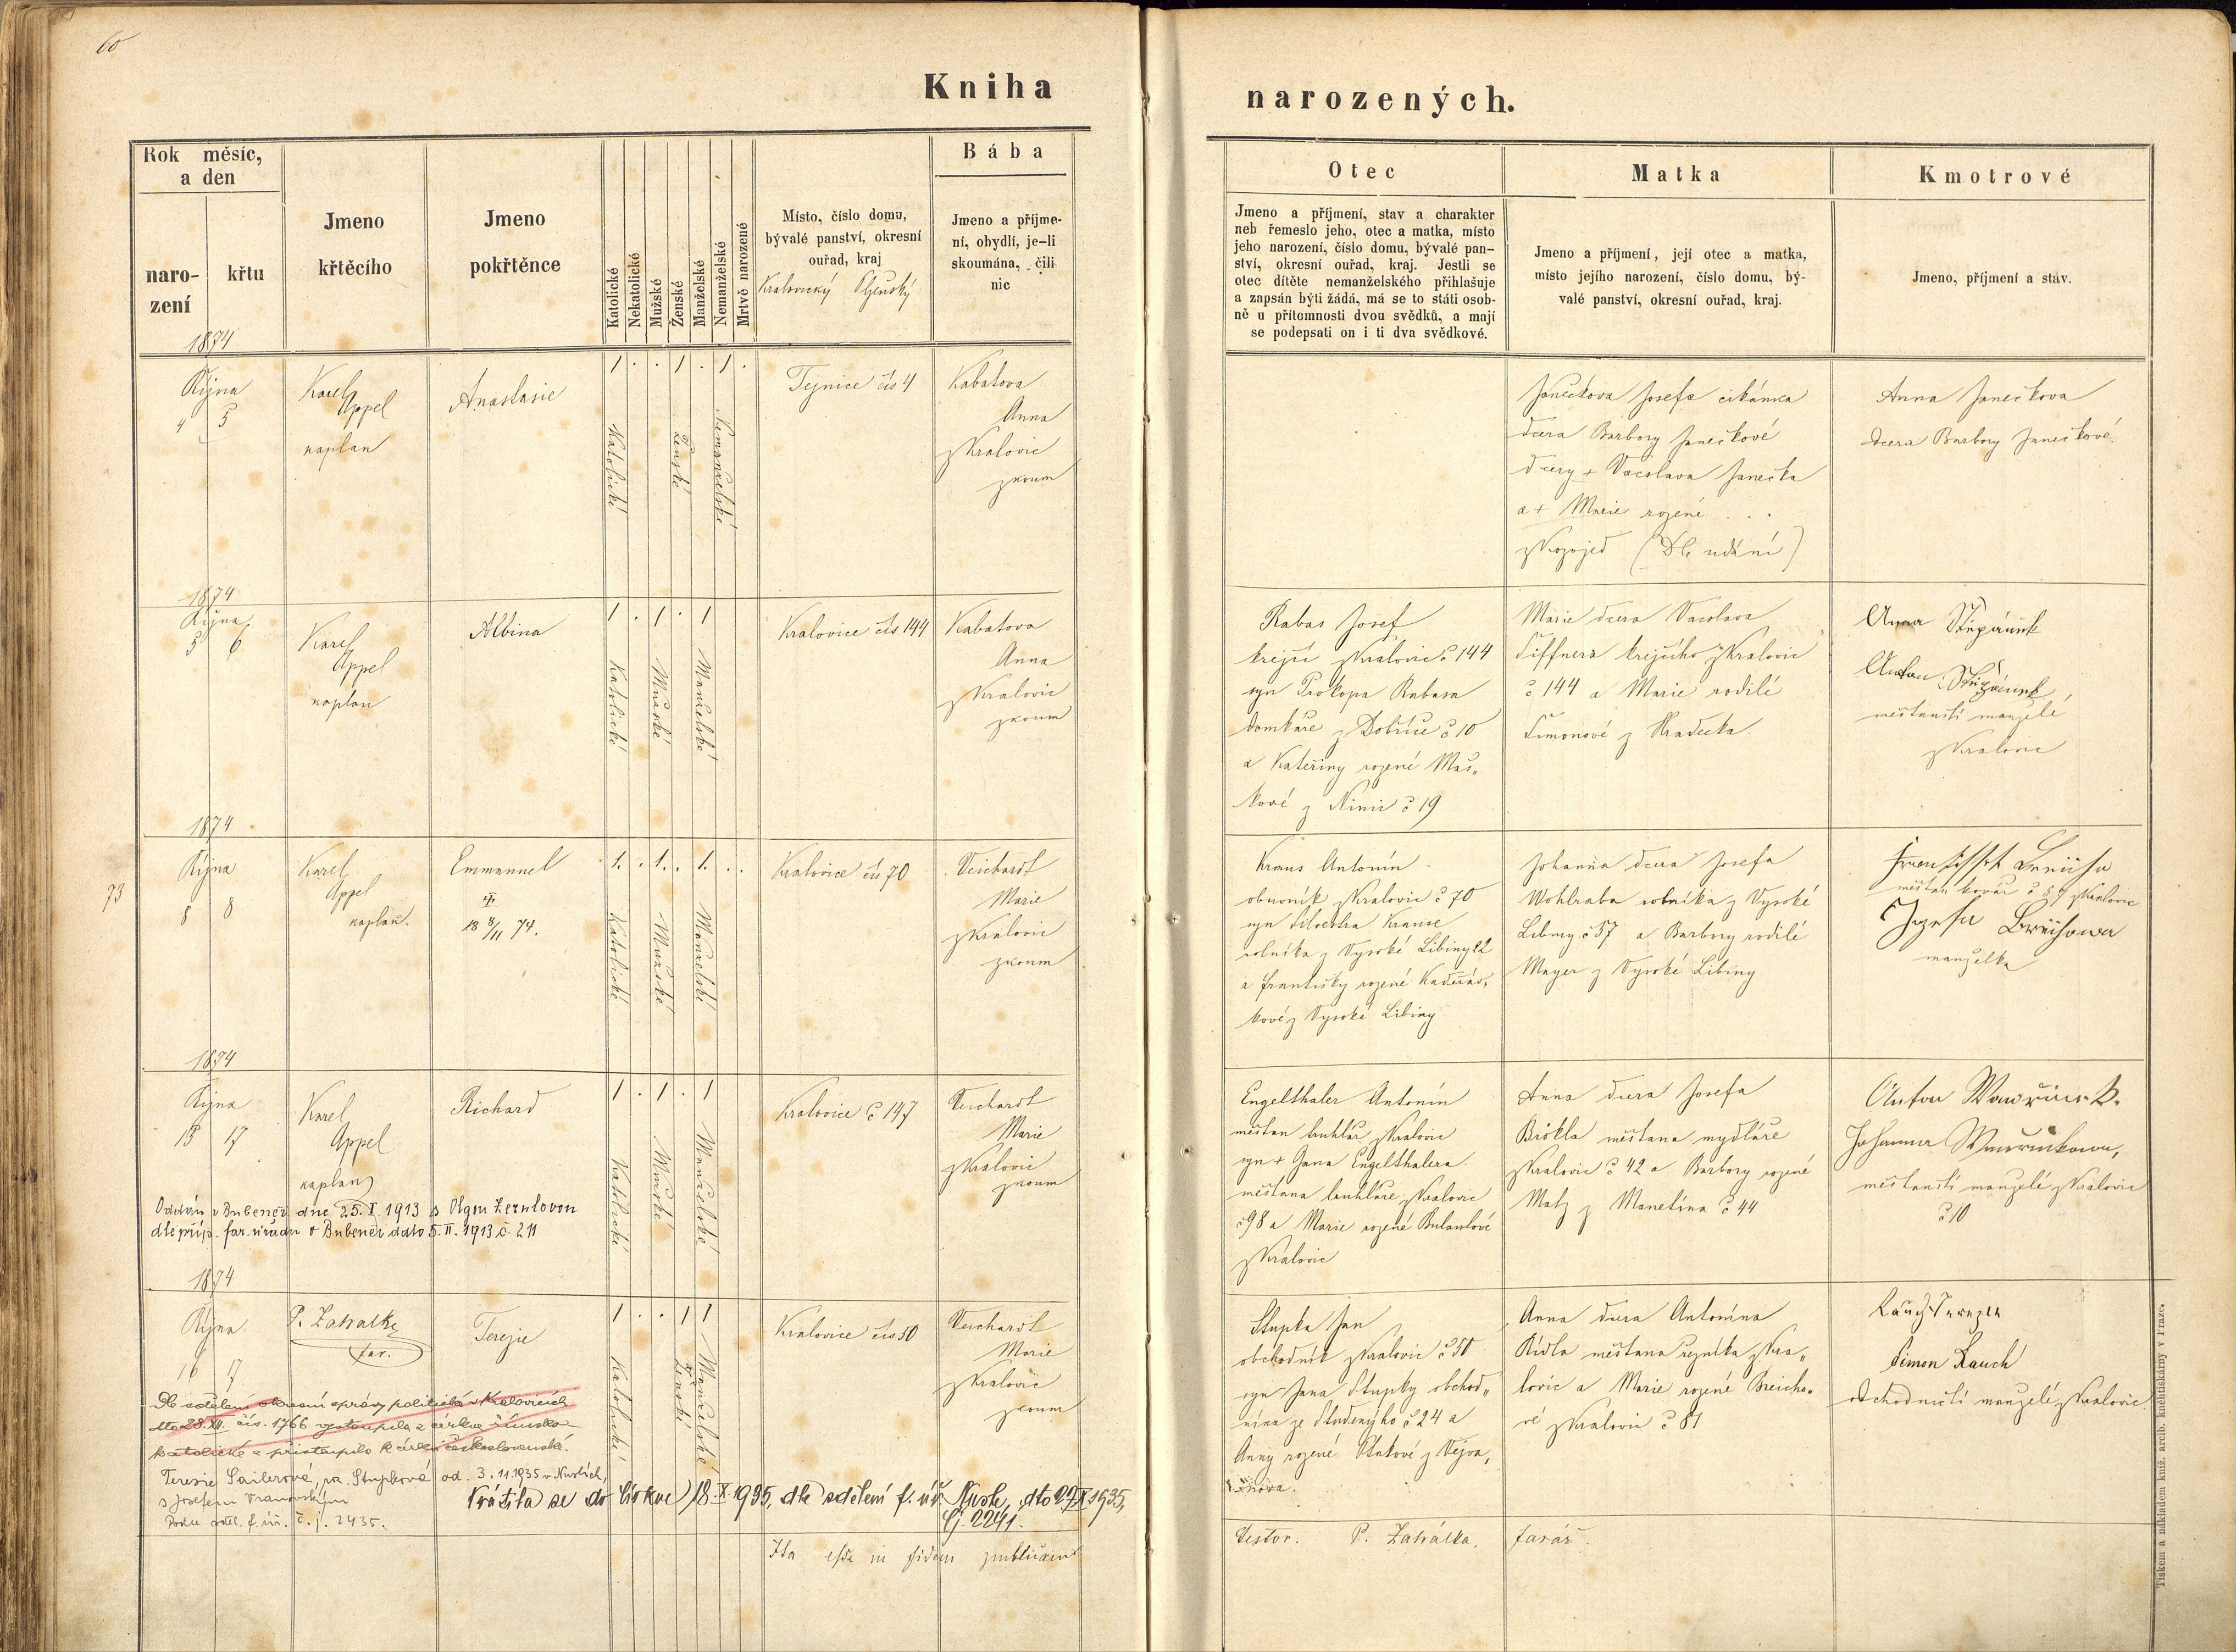 60
Kniha
narozených.
Rok měsíc,
a den
naro-
zení
křtu
Jmeno
křtěcího
Jmeno
pokřtěnce
Katolické
Nekatolické
Mužské
Ženské
Manželské
Nemanželské
Mrtvě narozené
Místo, číslo domu,
bývalé panství, okresní
ouřad, kraj
Kralovický Plzenský
Bába
Jmeno a příjme-
ní, obydlí, je-li
skoumána, čili
nic
Otec
Jmeno a příjmení, stav a charakter
neb řemeslo jeho, otec a matka, místo
jeho narození, číslo domu, bývalé pan-
ství, okresní ouřad, kraj. Jestli se
otec dítěte nemanželského přihlašuje
a zapsán býti žádá, má se to státi osob-
ně u přítomnosti dvou svědků, a mají
se podepsati on i ti dva svědkové.
Matka
Jmeno a příjmení, její otec a matka,
místo jejího narození, číslo domu, bý-
valé panství, okresní ouřad, kraj.
Kmotrové
Jmeno, příjmení a stav.
1874
Října
4 5
Karel
Appel
kaplan
Anastasie
1 . . 1 . 1 .
Katolické
Ženské
Nemanželské
Tejnice čís 4
Kabatova
Anna
z Kralovic
zkoum
Janečkova Josefa cikánka
dcera Barbory Janečkové
dcery + Vacslava Janečka
a + Marie rozené . . .
z Kozojed (Dle udání)
Anna Janečkova
dcera Barbory Janečkové.
1874
Října
5 6
Karel
Appel
kaplan
Albina
1 . 1 . 1
Katolické
Mužské
Manželské
Kralovice čís 144
Kabatova
Anna
z Kralovic
zkoum
Rabas Josef
krejčí z Kralovic č 144
syn Prokopa Rabasa
domkáře z Dobříče č 10
a Kateřiny rozené Maš„
kové z Ninic č 19
Marie dcera Vacslava
Tiffnera krejčího z Kralovic
č 144 a Marie rodilé
Šimonové z Hradecka.
Anna Štěpánek
Anton Štěpánek
měštanští manzelé
z Kralovic
1874
73
Října
8 8
Karel
Appel
kaplan.
Emmanuel
18 8/11 74.
1. . 1. . 1. . .
Katolické
Mužské
Manželské
Kralovice čís 70
Veichardt
Marie
z Kralovic
zkoum
Kraus Antonín
obuvník z Kralovic č 70
syn Silvestra Krause
rolníka z Vysoké Libiny 22
a Františky rozené
kové z Vysoké Libiny
Johanna dcera Josefa
Wohlraba rolníka z Vysoké
Libiny č 57 a Barbory rodilé
Mayer z Vysoké Libiny
měštan kovář č 57 z Kralovic
manželka
1874
Října
15 17
Karel
Appel
kaplan
Richard
1 . 1 . 1
Katolické
Mužské
Manželské
Kralovice č 147
Veichardt
Marie
z Kralovic
zkoum
Engelthaler Antonín
měštan truhlář z Kralovic
syn + Jana Engelthalera
měštana truhláře z Kralovic
č 98 a Marie rozené Bulantové
z Kralovic
Anna dcera Josefa
Brökla měštana mydláře
z Kralovic č 42 a Barbory rozené
Matz z Manetína č 44
Anton Wawřinek.
Johanna Wawřinkowa,
měštanští manzelé z Kralovic
č 10
Oddán v Bubenči dne 25. I. 1913 s Olgou Zerulovou
dle příp. far. úřadu v Bubenči ddto 5. II. 1913 č. 211
1874
Října
16 17
P. Zahálka
far.
Terezie
1 . . 1 1
Katolické
Ženské
Manželské
Kralovice čís 50
Veichardt
Marie
z Kralovic
zkoum
Stupka Jan
obchodník z Kralovic č 50
syn Jana Stupky obchod„
níka ze Studenýho č 24 a
Anny rozené
Anna dcera Antonína
Rídla měštana řezníka z Kra„
lovic a Marie rozené Breicho„
vé z Kralovic č 81
Rauch Terezie
Simon Rauch
obchodničtí manzelé z Kralovic.
Dle sdělení okresní správy politické v Kralovicích
dto 28. XII. čís. 1766 vystoupila z církve římsko-
katolické a přistoupila k církvi československé.
Terezie Sailerová, roz. Stupková od. 3. 11. 1935 v Nuslích,
s Josefem Vranovským
Podle sděl. f. úř. č. j. 2435.
Vrátila se do církve 18. X. 1935, dle sdělení f. úř. Nusle, dto 29. X 1935,
Čj. 2241.
Ita esse in fidem publicam
testor. P. Zahálka, farář.
Tiskem a nákladem kníž. arcib. knihtiskárny v Praze.